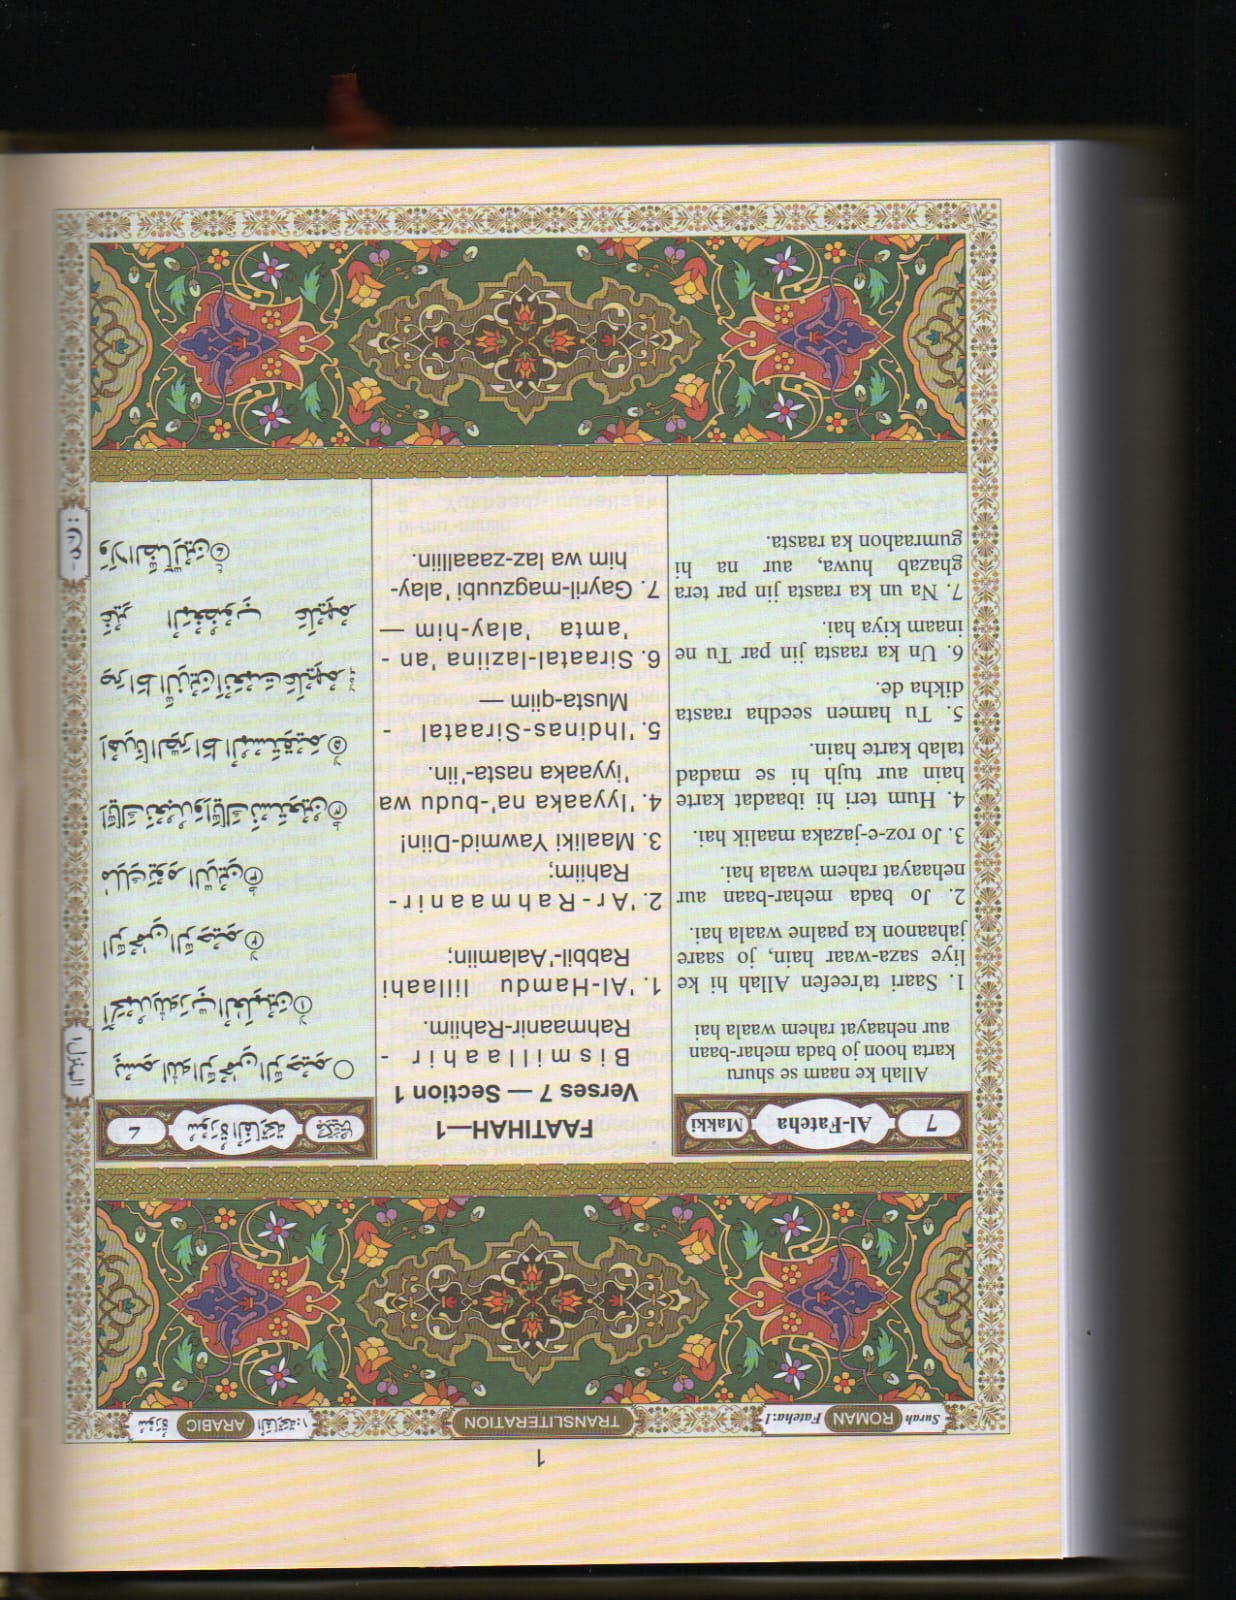 1
Surah ROMAN Fateha:1
TRANSLITERATION
الفاتحة:١ ARABIC سورة
7 Al-Fateha Makki
Allah ke naam se shuru
karta hoon jo bada mehar-baan
aur nehaayat rahem waala hai
1. Saari ta'reefen Allah hi ke
liye saza-waar hain, jo saare
jahaanon ka paalne waala hai.
2. Jo bada mehar-baan aur
nehaayat rahem waala hai.
3. Jo roz-e-jazaka maalik hai.
4. Hum teri hi ibaadat karte
hain aur tujh hi se madad
talab karte hain.
5. Tu hamen seedha raasta
dikha de.
6. Un ka raasta jin par Tu ne
inaam kiya hai.
7. Na un ka raasta jin par tera
ghazab huwa, aur na hi
gumraahon ka raasta.
FAATIHAH—1
Verses 7 — Section 1
Bismillaahir -
Rahmaanir-Rahiim.
1. 'Al-Hamdu lillaahi
Rabbil-'Aalamiin;
2. 'Ar-Rahmaanir-
Rahiim;
3. Maaliki Yawmid-Diin!
4. 'Iyyaaka na'-budu wa
'iyyaaka nasta-'iin.
5. 'Ihdinas-Siraatal -
Musta-qiim —
6. Siraatal-laziina 'an -
'amta 'alay-him —
7. Gayril-magzuubi 'alay-
him wa laz-zaaalliin.
مكية سُوْرَةُ الْفَاتِحَةِ ٧
بِسْمِ اللهِ الرَّحْمٰنِ الرَّحِيْمِ
اَلْحَمْدُ لِلّٰهِ رَبِّ الْعٰلَمِيْنَ ١
الرَّحْمٰنِ الرَّحِيْمِ ٢
مٰلِكِ يَوْمِ الدِّيْنِ ٣
اِيَّاكَ نَعْبُدُ وَاِيَّاكَ نَسْتَعِيْنُ ٤
اِهْدِنَا الصِّرَاطَ الْمُسْتَقِيْمَ ٥
صِرَاطَ الَّذِيْنَ اَنْعَمْتَ عَلَيْهِمْ ٦
غَيْرِ الْمَغْضُوْبِ عَلَيْهِمْ
وَلَا الضَّآلِّيْنَ ٧
المنزل ١